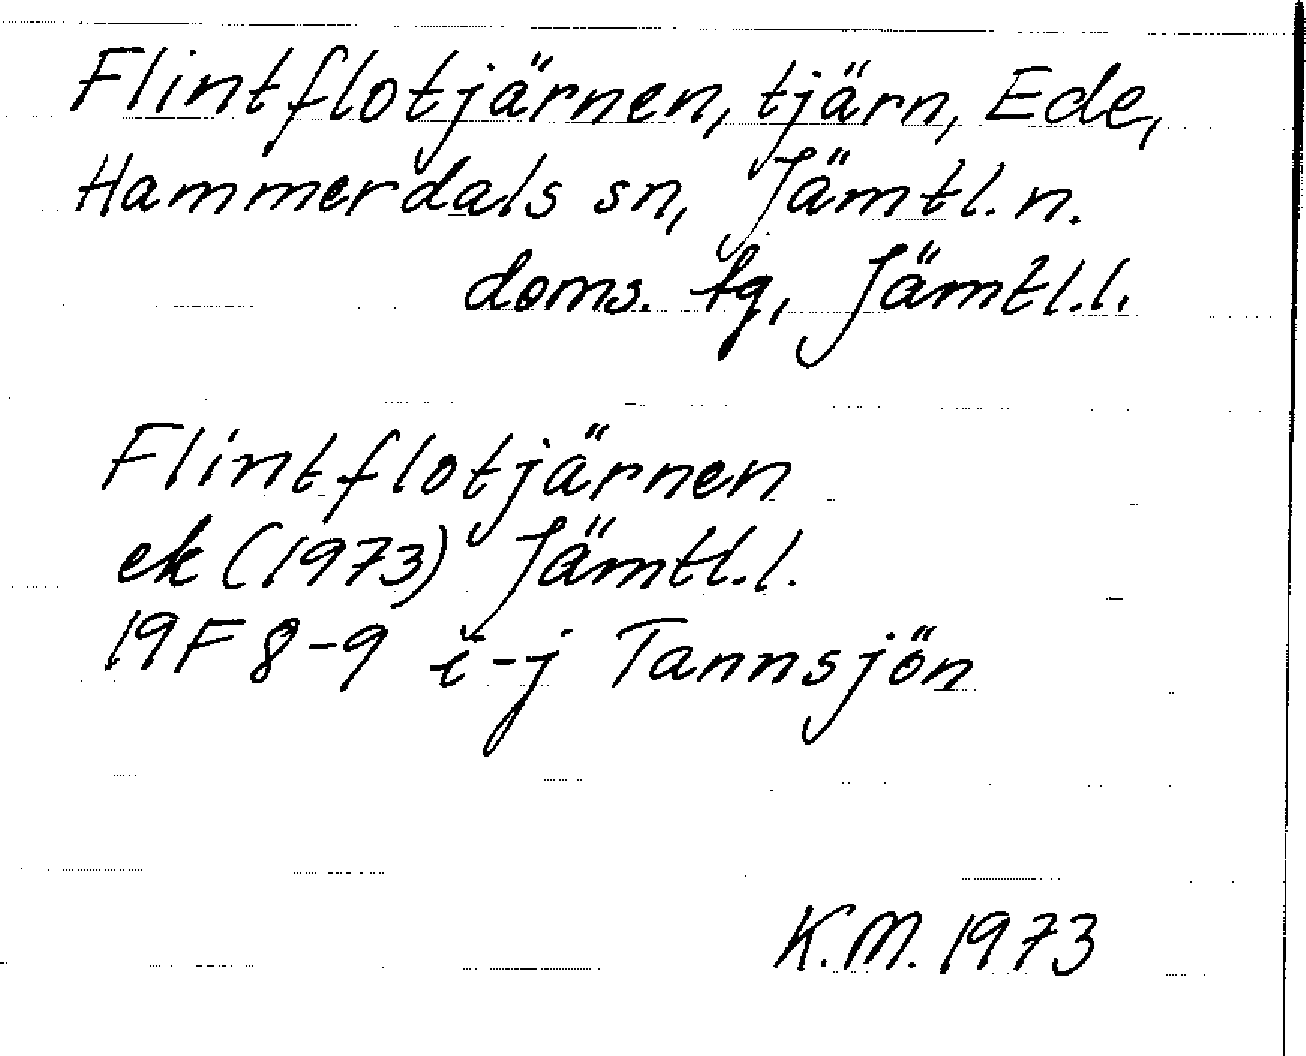 Flintflotjärnen, tjärn, Ede,
Hammerdals sn, Jämtl. n.
doms. tg, Jämtl.l.
Flintflotjärnen
ek (1973) Jämtl.l.
19F 8-9 i-j Tannsjön
K.M. 1973